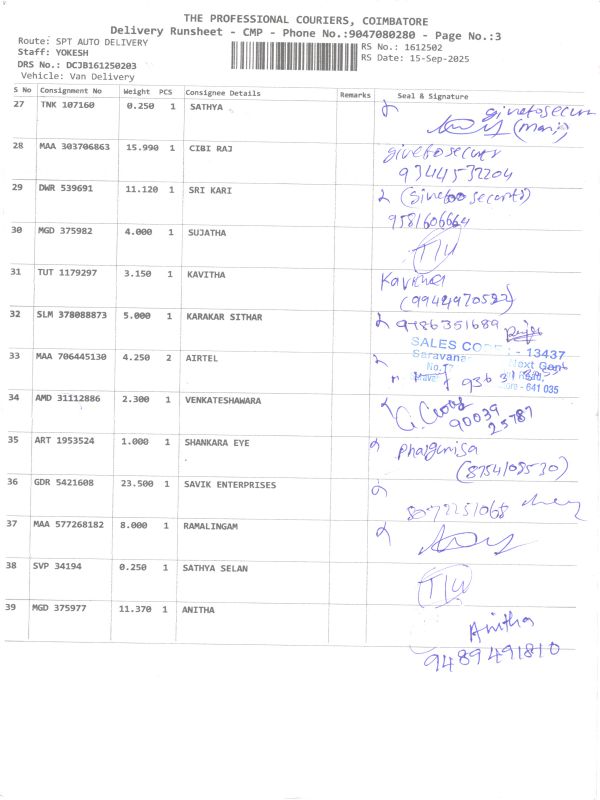 THE PROFESSIONAL COURIERS, COIMBATORE
Delivery Runsheet - CMP - Phone No.:9047080280 - Page No.:3
Route: SPT AUTO DELIVERY
RS No.: 1612502
Staff: YOKESH
RS Date: 15-Sep-2025
DRS No.: DCJB161250203
Vehicle: Van Delivery
S No Consignment No Weight PCS Consignee Details Remarks Seal & Signature
27 TNK 107160 0.250 1 SATHYA
(Mani)
28 MAA 303706863 15.990 1 CIBI RAJ
9344532204
29 DWR 539691 11.120 1 SRI KARI
9581606664
30 MGD 375982 4.000 1 SUJATHA
31 TUT 1179297 3.150 1 KAVITHA
Kavitha
(9944970522)
32 SLM 378088873 5.000 1 KARAKAR SITHAR
9786351689
33 MAA 706445130 4.250 2 AIRTEL
SALES CODE : - 13437
Saravana
Next Ganb
No.17
ore - 641 035
34 AMD 31112886 2.300 1 VENKATESHAWARA
90039
25787
35 ART 1953524 1.000 1 SHANKARA EYE
(8754109530)
36 GDR 5421608 23.500 1 SAVIK ENTERPRISES
37 MAA 577268182 8.000 1 RAMALINGAM
38 SVP 34194 0.250 1 SATHYA SELAN
39 MGD 375977 11.370 1 ANITHA
Anitha
9489491810